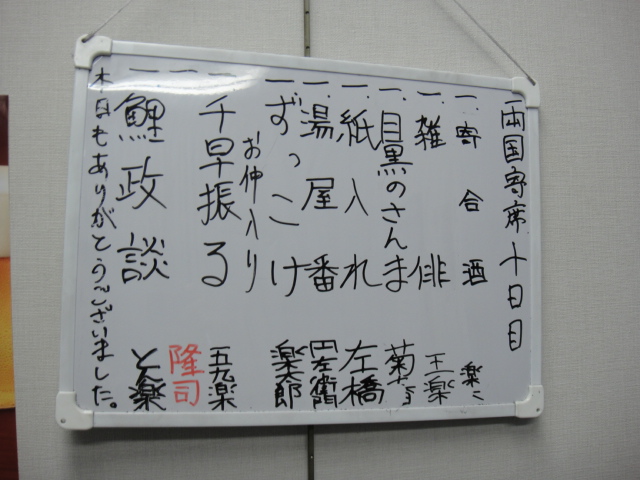 両国寄席十日目
一、寄合酒 楽
一、雑俳 王楽
一、目黒のさんま
一、紙入れ 左橋
一、湯屋番 円左衛門
一、ずっこけ 楽一郎
お仲入り
一、千早振る 五九楽
一 隆司
一 鯉政談 と楽
本日もありがとうございました。